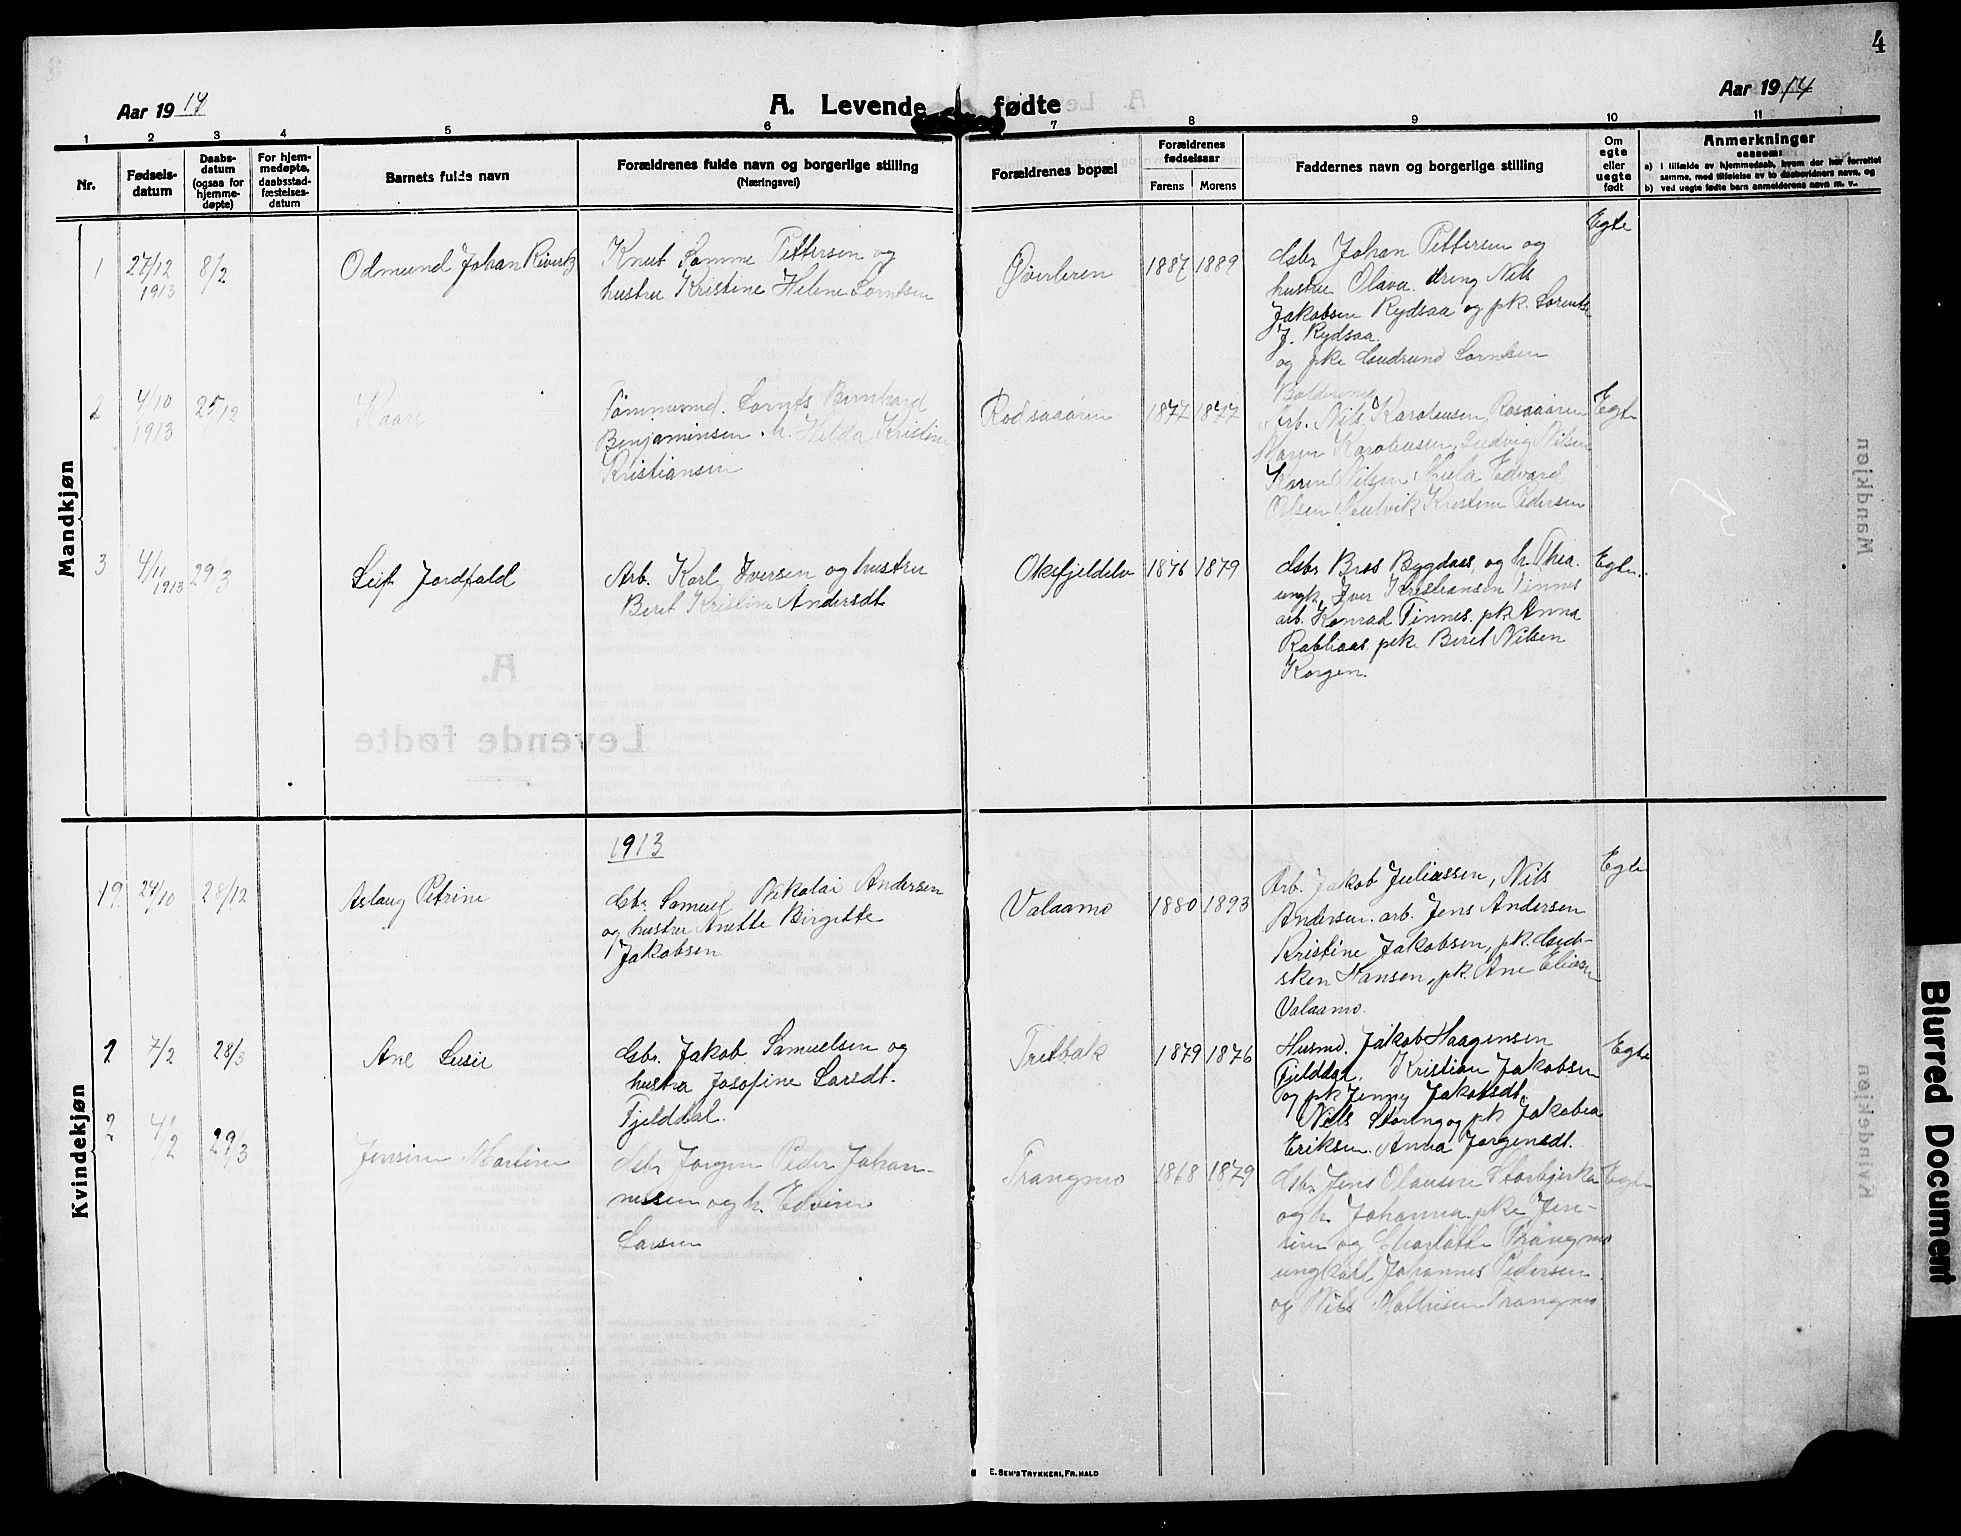 4
Aar 1914
A. Levende fødte
Aar 1914
1 2 3 4 5 6 7 8 9 10 11
Nr.
Fødselsdatum
Daabsdatum (ogsaa for hjemmedøpte)
For hjemmedøpte, daabsstadfæstelsesdatum
Barnets fulde navn
Forældrenes fulde navn og borgerlige stilling
(Næringsvei)
Forældrenes bopæl
Forældrenes fødselsaar
Farens Morens
Faddernes navn og borgerlige stilling
Om egte eller uegte født
Anmerkninger
saasom:
a) i tilfælde av hjemmedaab, hvem der har forrettet
samme, med tilføielse av to daabsvidners navn, og
b) ved uegte fødte barn anmelderens navn m. v.
Mandkjøn
1 27/12 1913 8/2
Odmund Johan Rivertz
Knut Samme Pettersen og
hustru Kristine Helene Lorntsen
Øverleren
1887 1889
Gbr. Johan Pettersen og
hustru Olava. dreng Nils
Jakobsen Rydsaa og pk. Lorentse
J. Rydsaa.
og pke Gudrund Lorntsen
Egte
2 4/10 1913 25/12
Kaare
Tømmermd. Lornts Bernhard
Benjaminsen. h. Hilda Kristine
Kristiansen
Rodsaaøren
1877 1877
Arb. Nils Karoliussen Rosaaøren
Karoliussen, Ludvig Nilsen
Karen Nilsen, Edvard
Olsen Kristine Pedersen
Egte
3 4/11 1913 29/3
Leif Jordfald
Arb. Karl Iversen og hustru
Beret Kristine Andersdt
Oksfjeldelv
1876 1879
Gbr. Bros Bygdaas og h. Thea.
ungk. Iver Kristiansen Finnes
arb. Konrad Finnes. pk. Anna
Rabliaas pike Beret Nilsen
Korgen.
Egte.
A.
Levende fødte
Kvindekjøn
1913
19. 24/10 28/12
Aslaug Petrine
Gbr. Samuel Nikolai Andersen
og hustru Anette Birgitte
Jakobsen
Valaamo
1880 1893
Arb. Jakob Juliassen, Nils
Andersen. arb. Jens Andersen
Kristine Jakobsen, pk.
Hansen, pk. Ane Eliasen
Valaamo.
Egte
1 7/2 28/3
Ane Lusie
Gbr. Jakob Samuelsen og
hustru Josefine Larsdt.
Fjelddal.
Tretbak
1879 1876
Husmd. Jakob Haagensen
Fjelddal. Kristian Jakobsen
og pk Jenny Jakobsdt.
Nils Storeng og pk Jakobea
Eriksen. Anna Jørgensdt.
Egte
2 4/2 29/3
Jensine Martine
Gbr. Jørgen Peder Johan-
nessen og h. Edvine
Larsen
Trangmo
1868 1879
Gbr. Jens Olausen Storbjerka
og h. Johanna. pke Jen-
sine og Charlotte Trangmo
ungkarl Johannes Pedersen
og Nils Mathisen Trangmo
Egte
E. Sem's Trykkeri, Fr.hald
Mandkjøn
Kvindekjøn
Blurred Document